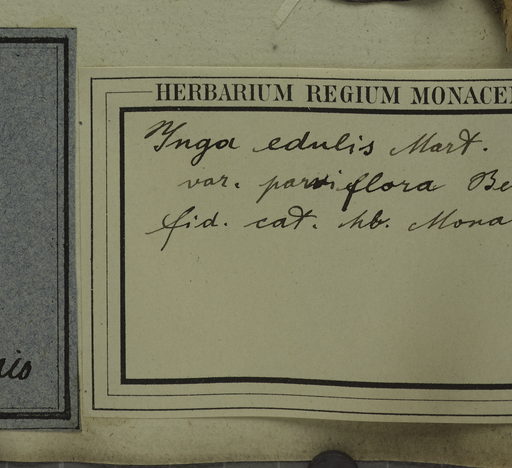 HERBARIUM REGIUM MONACE
Inga edulis Mart.
var. parviflora Be
fid. cat. hb. Mona